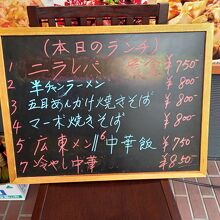 (本日のランチ)
1 ニラレバ ¥750-
2 半チャンラーメン ¥800-
3 五目あんかけ焼きそば ¥800-
4 マーボ焼きそば ¥800-
5 広東メン 6 中華飯 ¥750-
7 冷やし中華 ¥850-